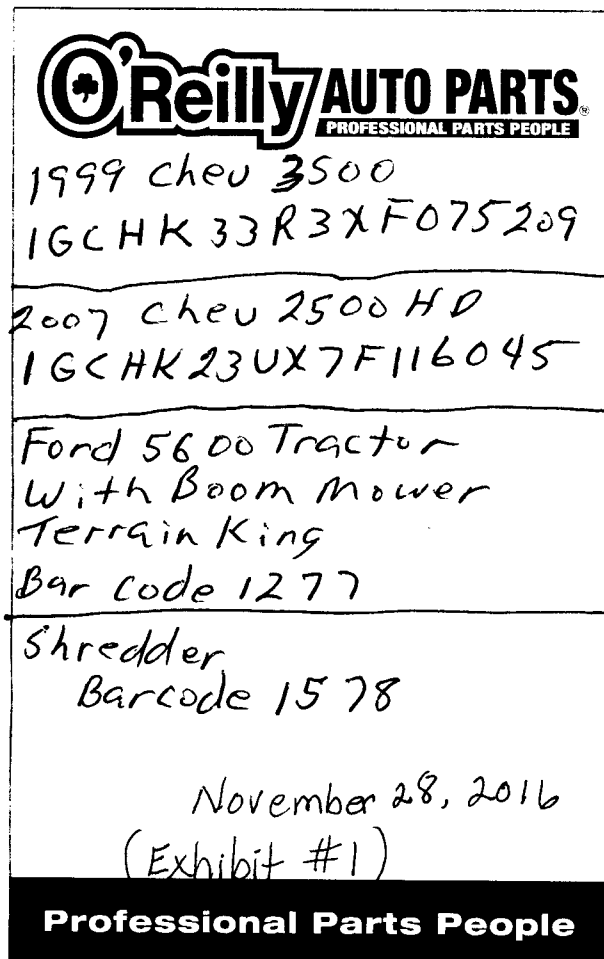 O'Reilly AUTO PARTS®
PROFESSIONAL PARTS PEOPLE
1999 Chev 3500
1GCHK33R3XF075209
2007 Chev 2500 HD
1GCHK23UX7F116045
Ford 5600 Tractor
With Boom Mower
Terrain King
Bar code 1277
Shredder
Barcode 1578
November 28, 2016
(Exhibit #1)
Professional Parts People